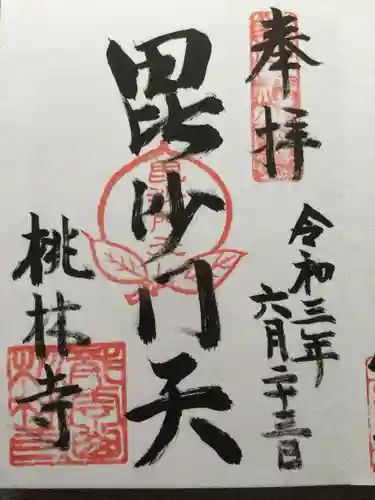 奉拝
令和三年
六月二十三日
毘沙門天
桃林寺